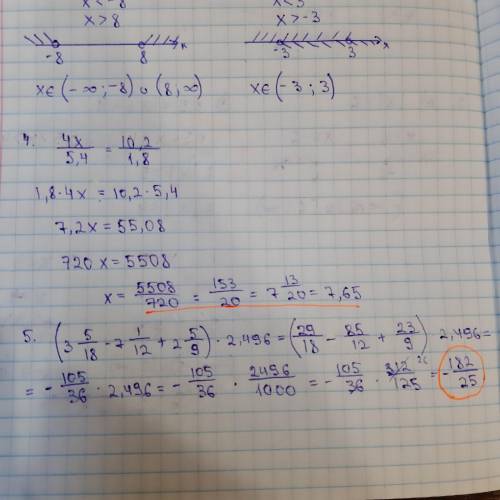 x<-8 x<3
x>8 x>-3
-8 8 x -3 3 x
x∈(-∞;-8)∪(8;∞) x∈(-3;3)
4. 4x/5,4 = 10,2/1,8
1,8·4x = 10,2·5,4
7,2x = 55,08
720x = 5508
x = 5508/720 = 153/20 = 7 13/20 = 7,65
5. (3 5/18 - 7 1/12 + 2 5/9) · 2,496 = (29/18 - 85/12 + 23/9) · 2,496 =
= - 105/36 · 2,496 = - 105/36 · 2496/1000 = - 105/36 · 312/125 26 = - 182/25